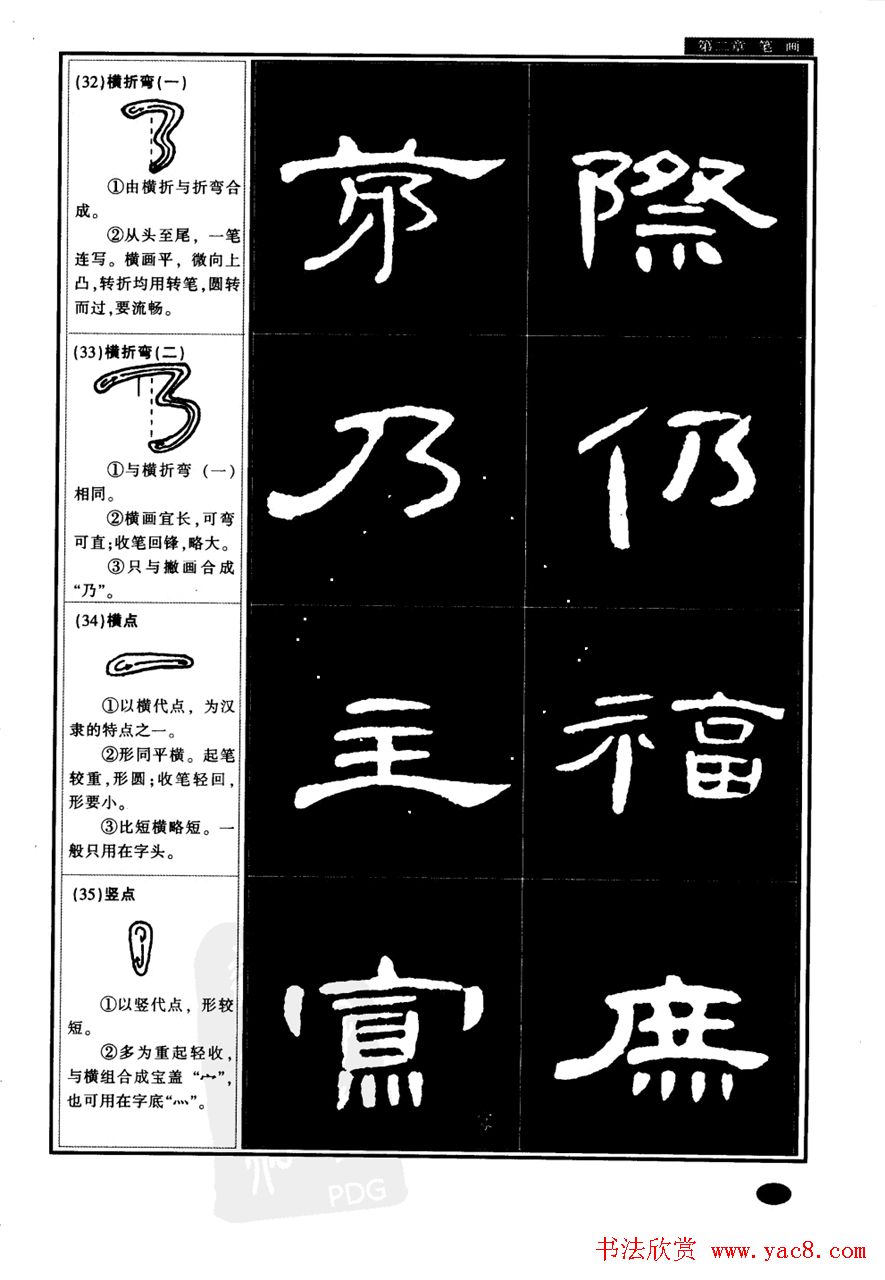 第二章 笔 画
(32)横折弯(一)
①由横折与折弯合
成。
②从头至尾，一笔
连写。横画平，微向上
凸，转折均用转笔，圆转
而过，要流畅。
際
(33)横折弯(二)
①与横折弯（一）
相同。
②横画宜长，可弯
可直；收笔回锋，略大。
③只与撇画合成
“乃”。
乃 仍
(34)横点
①以横代点，为汉
隶的特点之一。
②形同平横。起笔
较重，形圆；收笔轻回，
形要小。
③比短横略短。一
般只用在字头。
主 福
(35)竖点
①以竖代点，形较
短。
②多为重起轻收，
与横组合成宝盖“宀”，
也可用在字底“灬”。
PDG
书法欣赏 www.yac8.com